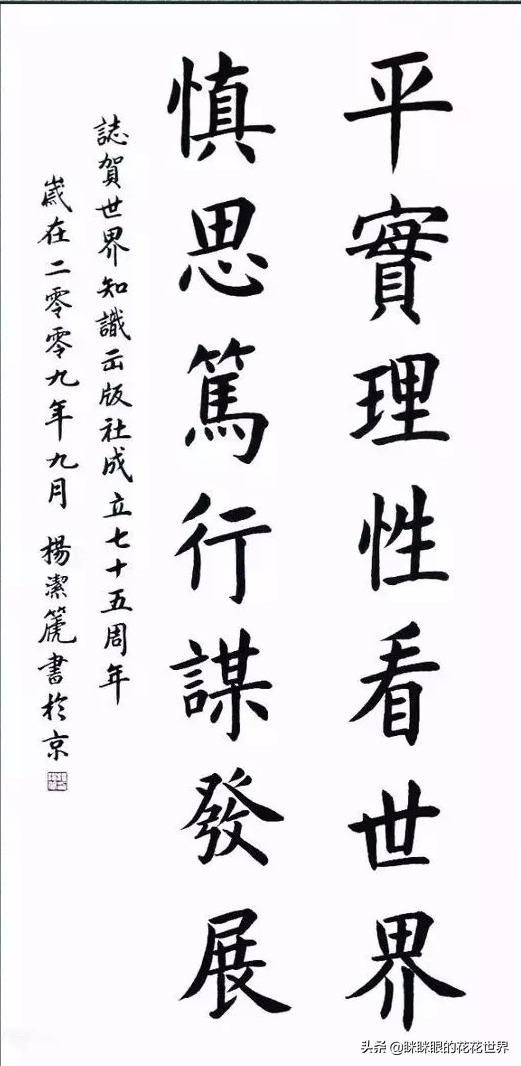 平實理性看世界
慎思篤行謀發展
誌賀世界知識出版社成立七十五周年
歲在二零零九年九月 楊潔篪書於京
头条 @眯眯眼的花花世界